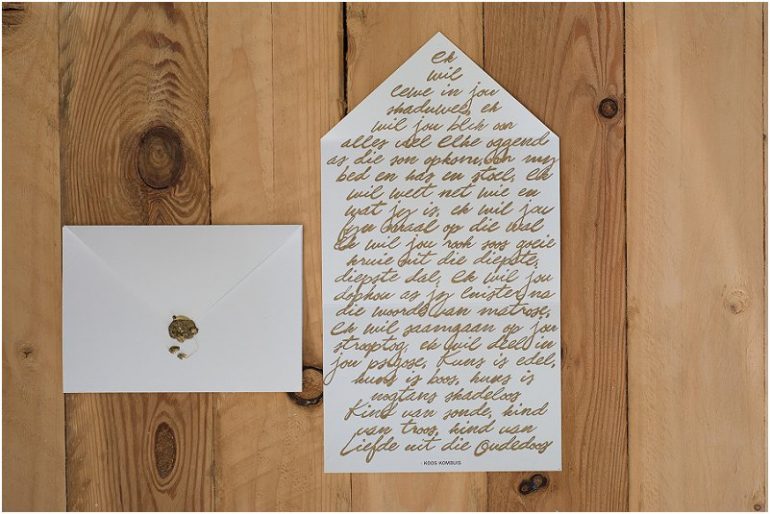 Ek
wil
lewe in jou
skaduwee, ek
wil jou blik oor
alles voel Elke oggend
as die son opkom, oor my
bed en kas en stoel, Ek
wil weet net wie en
wat jy is, ek wil jou
fyn maal op die wal
Ek wil jou rook soos goeie
kruie uit die diepste,
diepste dal, Ek wil jou
dophou as jy luister na
die woorde van matrose,
Ek wil saamgaan op jou
strooptog, ek wil deel in
jou psigose, Kuns is edel,
kuns is boos, kuns is
nogtans skadeloos
Kind van sonde, kind
van troos, kind van
Liefde uit die Oudedoos
- KOOS KOMBUIS